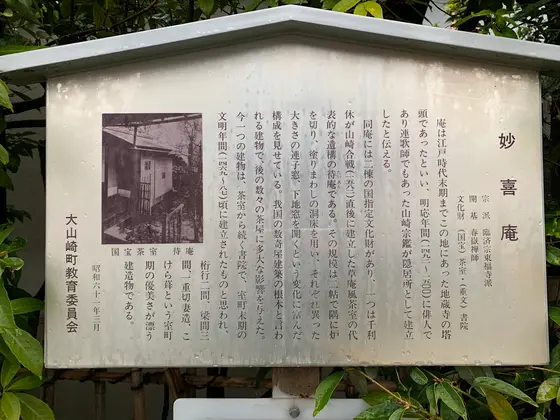 妙喜庵
宗派 臨済宗東福寺派
開基 春嶽禅師
文化財(国宝)茶室・(重文)書院
庵は江戸時代末期までこの地にあった地蔵寺の塔
頭であったといい、明応年間(一四九二〜一五〇〇)に俳人で
あり連歌師でもあった山崎宗鑑が隠居所として建立
したと伝える。
同庵には二棟の国指定文化財があり、一つは千利
休が山崎合戦(一五八二)直後に建立した草庵風茶室の代
表的な遺構の待庵である。その規模は二帖で隅に炉
を切り、塗りまわしの洞床を用い、それぞれ異った
大きさの連子窓、下地窓を開くという変化に富んだ
構成を見せている。我国の数奇屋建築の根本と言わ
れる建物で、後の数々の茶屋に多大な影響を与えた。
今一つの建物は、茶室から続く書院で、室町末期の
文明年間(一四六九〜八七)頃に建立されたものと思われ、
桁行二間、梁間三
間、一重切妻造、こ
けら葺という室町
期の優美さが漂う
建造物である。
国宝茶室 待庵
昭和六十二年三月
大山崎町教育委員会